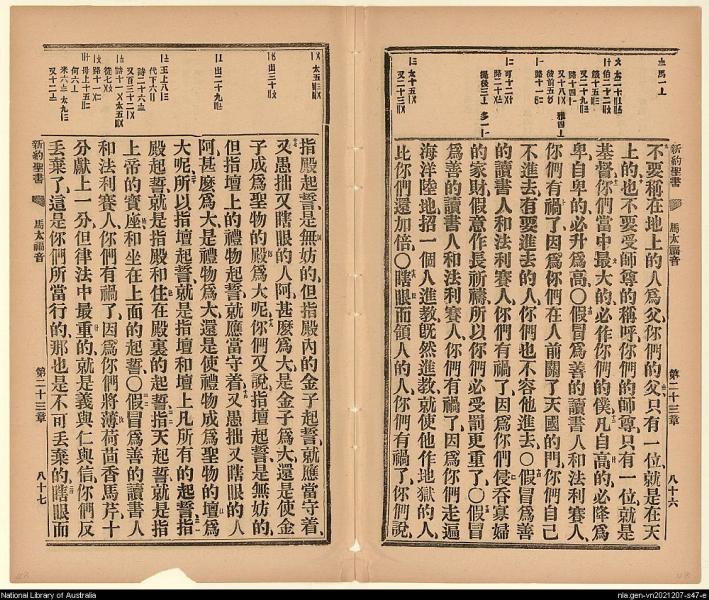 新約聖書
馬太福音
第二十三章
八十六
不要稱在地上的人爲父你們的父只有一位就是在天
上的也不要受師尊的稱呼你們的師尊只有一位就是
基督你們當中最大的必作你們的僕凡自高的必降爲
卑自卑的必升爲高〇假冒爲善的讀書人和法利賽人
你們有禍了因爲你們在人前關了天國的門你們自己
不進去有要進去的人你們也不容他進去〇假冒爲善
的讀書人和法利賽人你們有禍了因爲你們侵吞寡婦
的家財假意作長祈禱所以你們必受罰更重了〇假冒
爲善的讀書人和法利賽人你們有禍了因爲你們走遍
海洋陸地招一個人進教旣然進教就使他作地獄的人
比你們還加倍〇瞎眼而領人的人你們有禍了你們說
指殿起誓是無妨的但指殿內的金子起誓就應當守着
又愚拙又瞎眼的人阿甚麼爲大是金子爲大還是使金
子成爲聖物的殿爲大呢你們又說指壇起誓是無妨的
但指壇上的禮物起誓就應當守着又愚拙又瞎眼的人
阿甚麼爲大是禮物爲大還是使禮物成爲聖物的壇爲
大呢所以指壇起誓就是指壇和壇上凡所有的起誓指
殿起誓就是指殿和住在殿裏的起誓指天起誓就是指
上帝的寶座和坐在上面的起誓〇假冒爲善的讀書人
和法利賽人你們有禍了因爲你們將薄荷茴香馬芹十
分獻上一分但律法中最重的就是義與仁與信你們反
丟棄了這是你們所當行的那也是不可丟棄的瞎眼而
新約聖書
馬太福音
第二十三章
八十七
National Library of Australia
nla.gen-vn2021207-s47-e